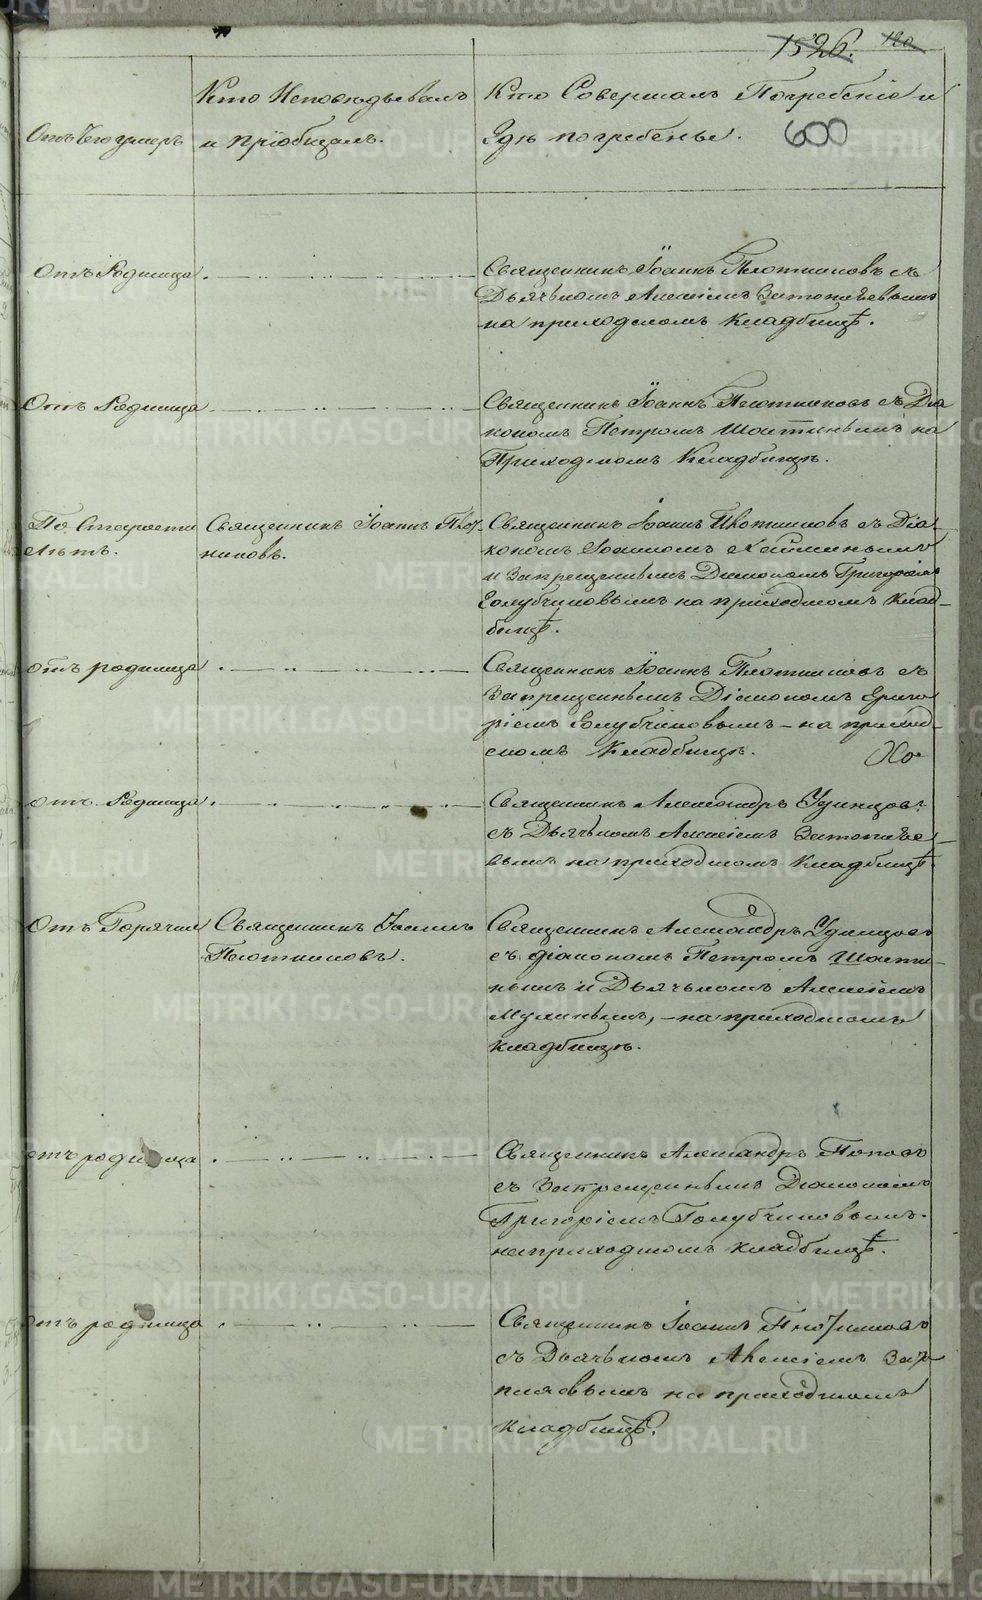 1526. 120
Отъ чего умеръ
Кто Исповѣдывалъ
и пріобщалъ.
Кто Совершалъ Погребеніе и
Гдѣ погребены.
608
Отъ Родимца
Священникъ Іоаннъ Плотниковъ съ
Дьячкомъ Алексіемъ
на приходскомъ кладбищѣ.
Отъ Родимца
Священникъ Іоаннъ Плотниковъ съ Діа
кономъ Петромъ Шастинымъ на
Приходскомъ Кладбищѣ.
По Старости
лѣтъ.
Священникъ Іоаннъ Плот
никовъ.
Священникъ Іоаннъ Плотниковъ съ Діа-
кономъ Іоанномъ
и Запрещеннымъ Діакономъ Григоріемъ
Голубчиковымъ на приходскомъ клад-
бищѣ.
отъ родимца
Священникъ Іоаннъ Плотниковъ съ
Запрещеннымъ Діакономъ Григо
ріемъ Голубчиковымъ – на приход-
скомъ Кладбищѣ.
отъ Родимца
Священникъ Александръ Удинцовъ
съ Дьячкомъ Алексіемъ
вымъ на приходскомъ кладбищѣ.
Отъ Горячки
Священникъ Іоаннъ
Плотниковъ.
Священникъ Александръ Удинцовъ
съ діакономъ Петромъ Шасти-
нымъ и Дьячкомъ Алексіемъ
Мухинымъ, – на приходскомъ
кладбищѣ.
отъ родимца
Священникъ Александръ Поповъ
съ Запрещеннымъ Діакономъ
Григоріемъ Голубчиковымъ.
на приходскомъ кладбищѣ.
отъ родимца
Священникъ Іоаннъ Плотниковъ
съ Дьячкомъ Алексіемъ
на приходскомъ
кладбищѣ.
METRIKI.GASO-URAL.RU